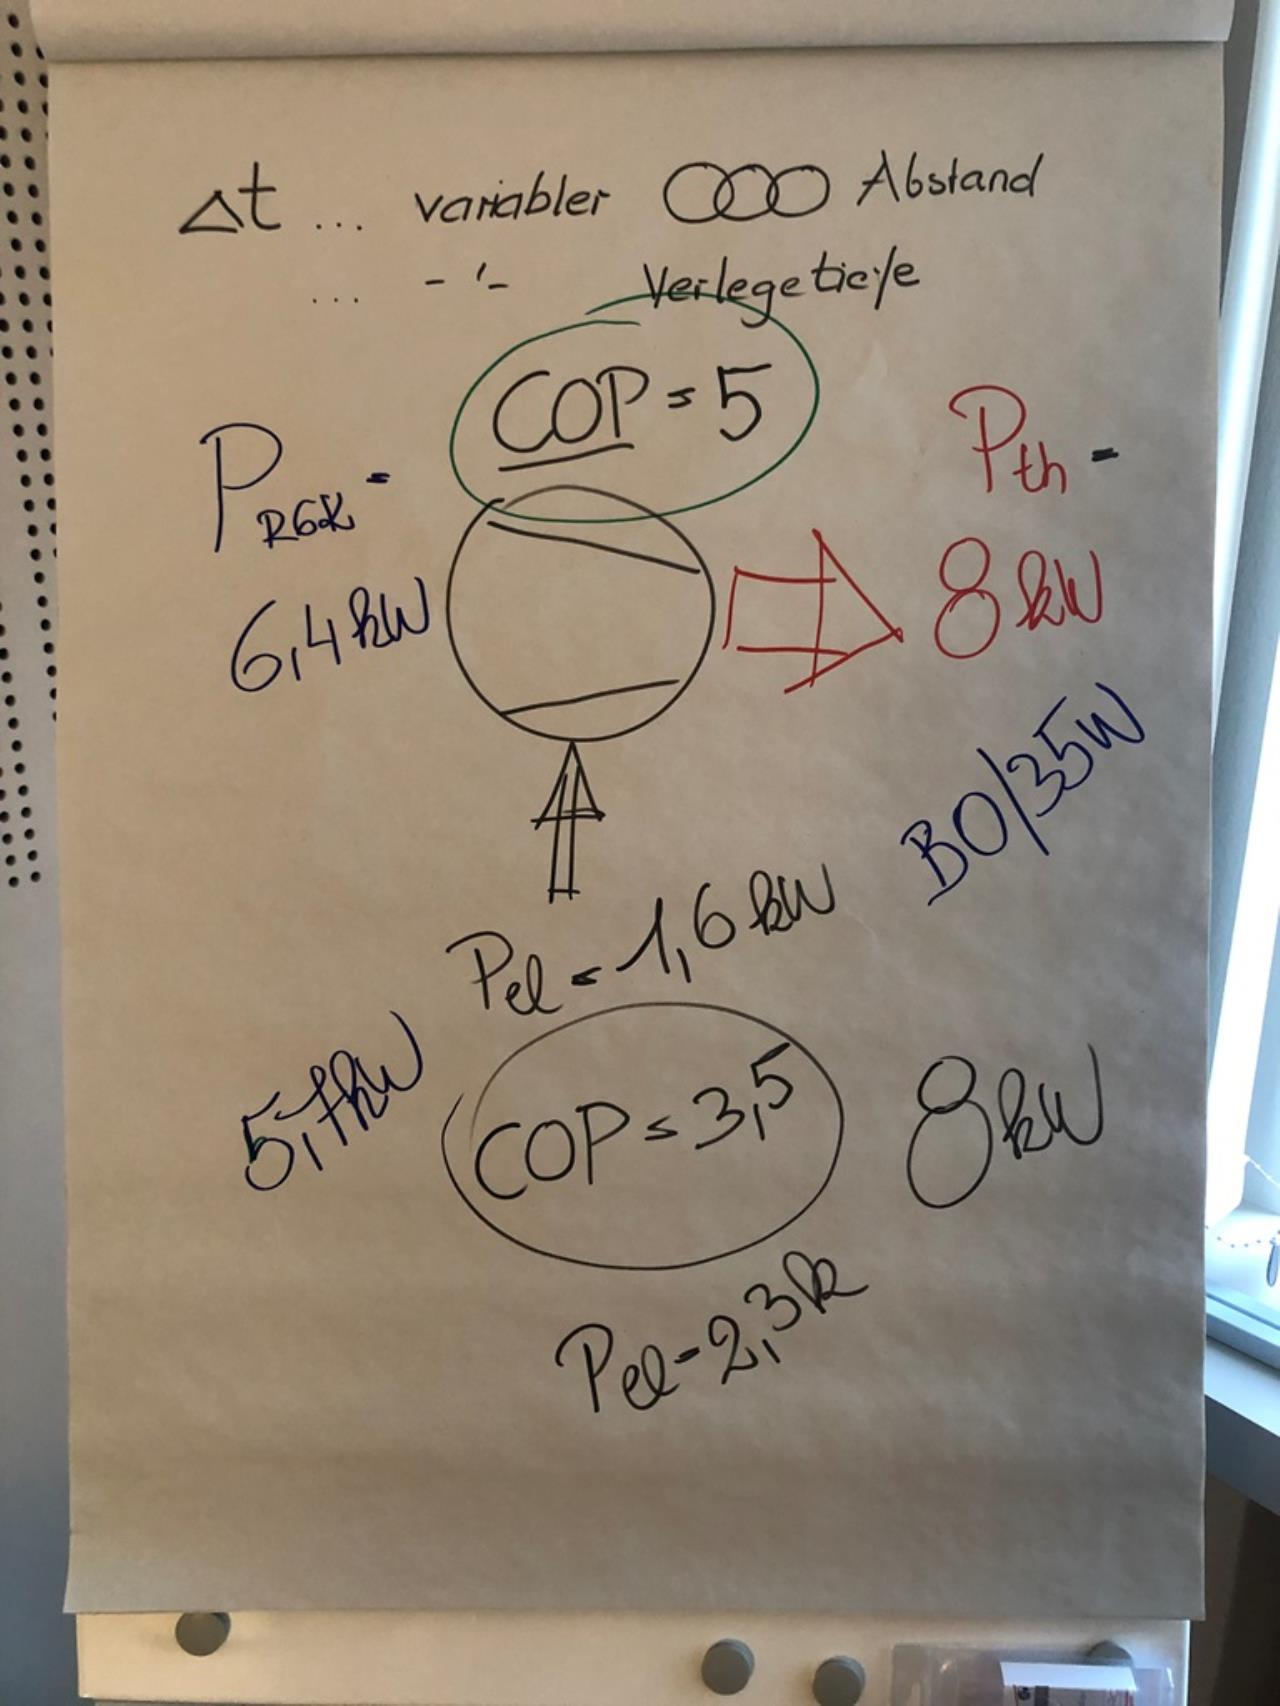 Δt ... variabler Abstand
... -'- Verlegetiefe
COP = 5
PRGK =
6,4kW
Pth =
8kW
B0/35W
Pel = 1,6kW
5,7kW
COP = 3,5
8kW
Pel = 2,3k